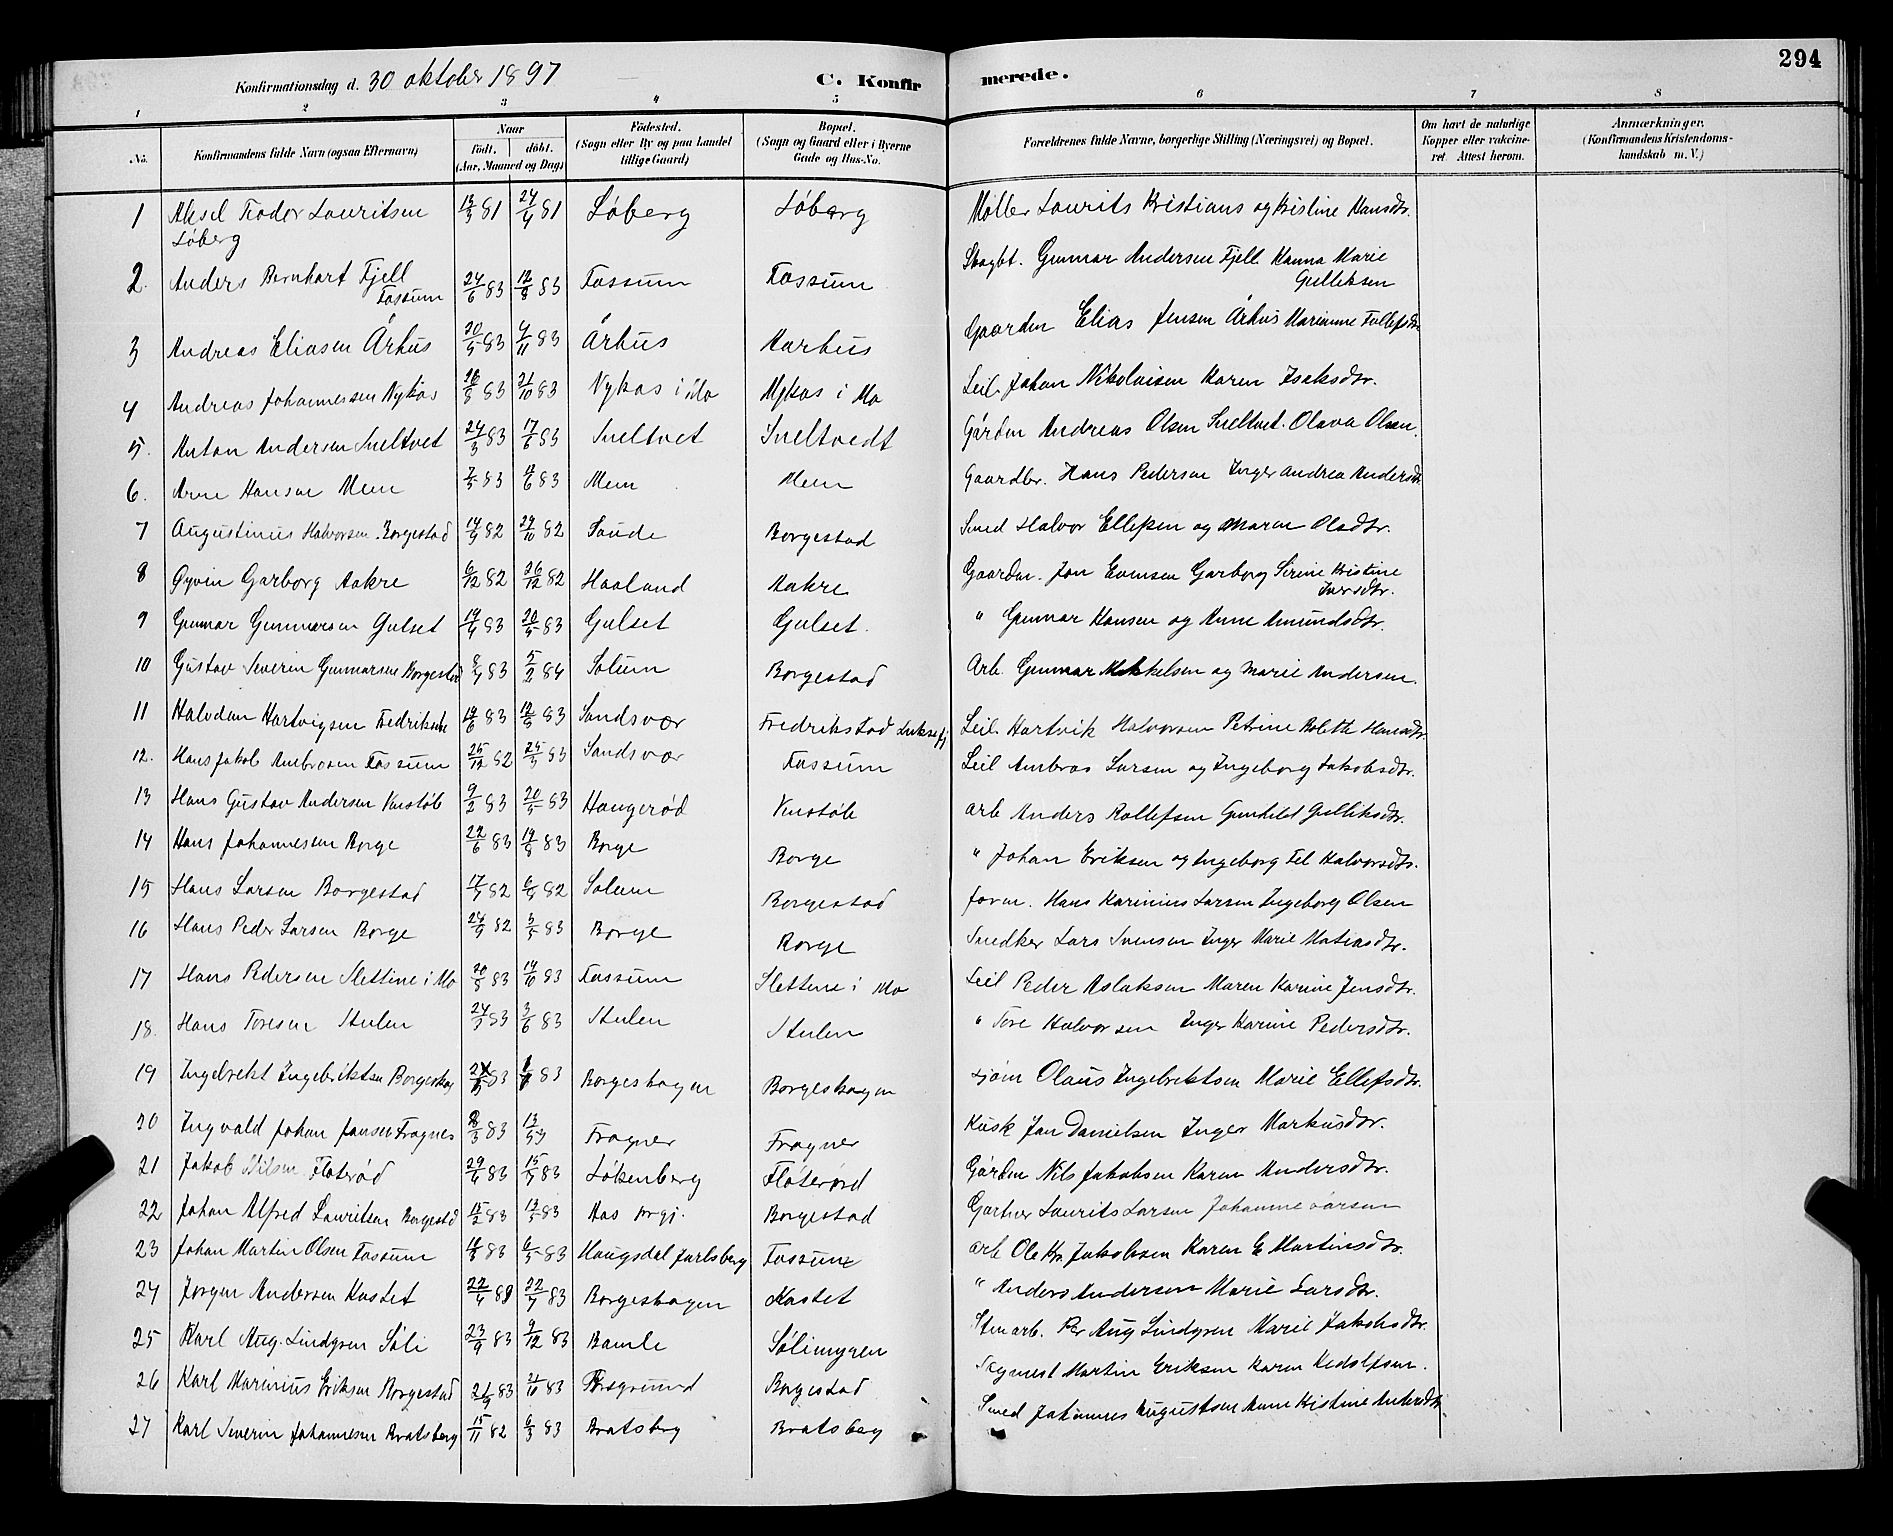 294
Konfirmationsdag d. 30 oktober 1897 C. Konfirmerede.
1 2 3 4 5 6 7 8
No. Konfirmandens fulde Navn (ogsaa Efternavn) Naar födt. döbt. (Aar, Maaned og Dag) Födested. (Sogn eller By og paa Landet tillige Gaard) Bopæl. (Sogn og Gaard eller i Byerne Gade og Hus-No. Forældrenes fulde Navne, borgerlige Stilling (Næringsvei) og Bopæl. Om havt de naturlige Kopper eller vakcineret Attest herom. Anmærkninger. (Konfirmandens Kristendomskundskab m. V.)
1 Aksel Teodor Lauritsen Löberg 81 24/4 81 Löberg Löberg Møller Laurits Kristians og Kristine Hansdtr.
2. Anders Bernhart Fjell Fossum 24/6 83 12/8 83 Fossum Fossum Skogbt. Gunnar Andersen Fjell Hanna Marie Gulliksen
3 Andreas Eliasen Århus 20/5 83 4/11 83 Århus Aarhus Gaarden Elias Jensen Århus Marianne Tollefsdtr
4 Andreas Johannessen Nykås 26/8 83 21/10 83 Nykas i Mo Nykas i Mo Leil. Johan Nikolaisen Karen Isaksdtr.
5. Anton Andersen Sneltvet 24/3 83 17/6 83 Sneltvet Sneltvedt Gården Andreas Olsen Sneltvet. Olava Olsen.
6. Arne Hansen Mem 83 83 Mem Mem Gaardbr. Hans Pedersen Inger Andrea Andersdtr
7 Augustinus Halvorsen Borgestad 14/9 82 29/10 82 Saude Borgestad Smed Halvor Ellefsen og Maren Olsdtr.
8 Øyvin Garborg Aakre 6/12 82 26/12 82 Haaland Aakre Gaardm. Jon Evensen Garborg Sirine Kristine Iversdtr.
9 Gunnar Gunnarsen Gulset 19/4 83 20/5 83 Gulset Gulset. " Gunnar Hansen og Anne Amundsdtr.
10 Gustav Severin Gunnarsen Borgestad 83 5/2 84 Solum Borgestad Arb. Gunnar Mikkelsen og Marie Andersen.
11 Halvdan Hartvigsen 83 83 Sandsvær Fredrikstad Leil. Hartvik Halvorsen Petrine Hansdtr.
12. Hans Jakob Ambrosen Fossum 25/12 82 83 Sandsvær Fossum Leil Ambros Larsen og Ingeborg Jakobsdtr.
13 Hans Gustav Andersen Venstøb 9/2 83 20/5 83 Haugerød Venstøb arb Anders Rollefsen Gunhild Gulliksdtr.
14 Hans Johannesen Borge 22/6 83 19/8 83 Borge Borge " Johan Eriksen og Ingeborg Halvorsdtr.
15 Hans Larsen Borgestad 82 82 Solum Borgestad form. Hans Karinius Larsen Ingeborg Olsen
16 Hans Peder Larsen Borge 24/9 82 3/5 83 Borge Borge Snedker Lars Svensen Inger Marie Matiasdtr.
17 Hans Pedersen Slettine i Mo 20/8 83 14/10 83 Fossum Slettene i Mo Leil Peder Aslaksen Maren Karine Jensdtr.
18. Hans Toresen Stulen 83 3/6 83 Stulen Stulen " Tore Halvorsen Inger Karine Pedersdtr.
19 Ingebrekt Ingebriktsen Borgeskog 83 83 Borgeskogen Borgeskogen sjøm Olaus Ingebrektsen Marie Ellefsdtr.
20 Ingvald Johan Jansen Frogner 83 Frogner Frogner Kusk Jan Danielsen Inger Markusdtr.
21 Jakob Nilsen Floterød 29/4 83 83 Løkenberg Fløterød Gården Nils Jakobsen Karen Andersdtr.
22 Johan Alfred Lauritsen Borgestad 15/2 83 83 Aas Borgestad Gartner Laurits Larsen Johanne Larsen
23 Johan Martin Olsen Fossum 83 83 Haugsdal Jarlsberg Fossum arb Ole Kr. Jakobsen Karen E Martinsdtr.
24 Jorgen Andersen Kastet 22/4 83 22/7 83 Borgeskogen Kastet " Anders Andersen Marie Larsdtr.
25 Karl Aug. Lindgren Söli 23/9 83 9/12 83 Bamle Sölimyren Stenarb. Per Aug Lindgren Marie Jakobsdtr.
26 Karl Marinius Eriksen Borgestad 83 83 Porsgrund Borgestad Martin Eriksen Karen
27 Karl Severin Johannesen Bratsberg 15/11 82 6/3 83 Bratsberg Bratsberg Smed Johannes Augustsen Anne Kristine